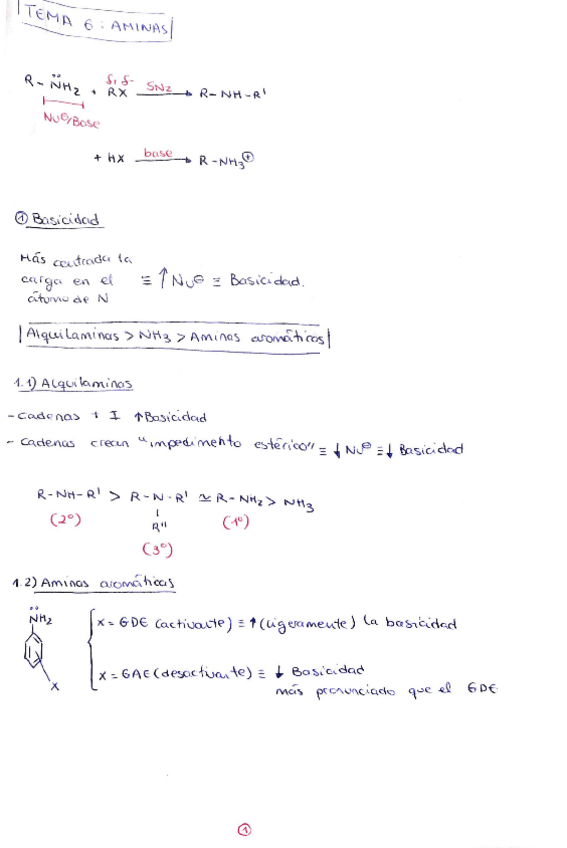 TEMA 6: AMINAS
R-N̈H₂ + RX SN2 → R-NH-R'
δ+ δ-
Nu⊖/Base
+ HX base → R-NH₃⊕
① Basicidad
Más centrada la
carga en el ≡ ↑ Nu⊖ ≡ Basicidad.
átomo de N
Alquilaminas > NH₃ > Aminas aromáticas
1.1) Alquilaminas
- Cadenas + I ↑Basicidad
- Cadenas crean "impedimento estérico" ≡ ↓ Nu⊖ ≡ ↓ Basicidad
R-NH-R' > R-N-R' ≃ R-NH₂ > NH₃
R''
(2º) (3º) (1º)
1.2) Aminas aromáticas
N̈H₂
X
X = GDE (activante) ≡ ↑ (ligeramente) la basicidad
X = GAE (desactivante) ≡ ↓ Basicidad
más pronunciado que el GDE
①